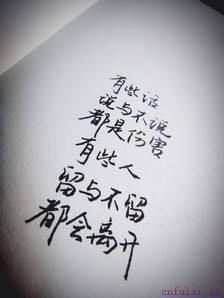 有些话
说与不说
都是伤害
有些人
留与不留
都会离开
cnfulai.cn